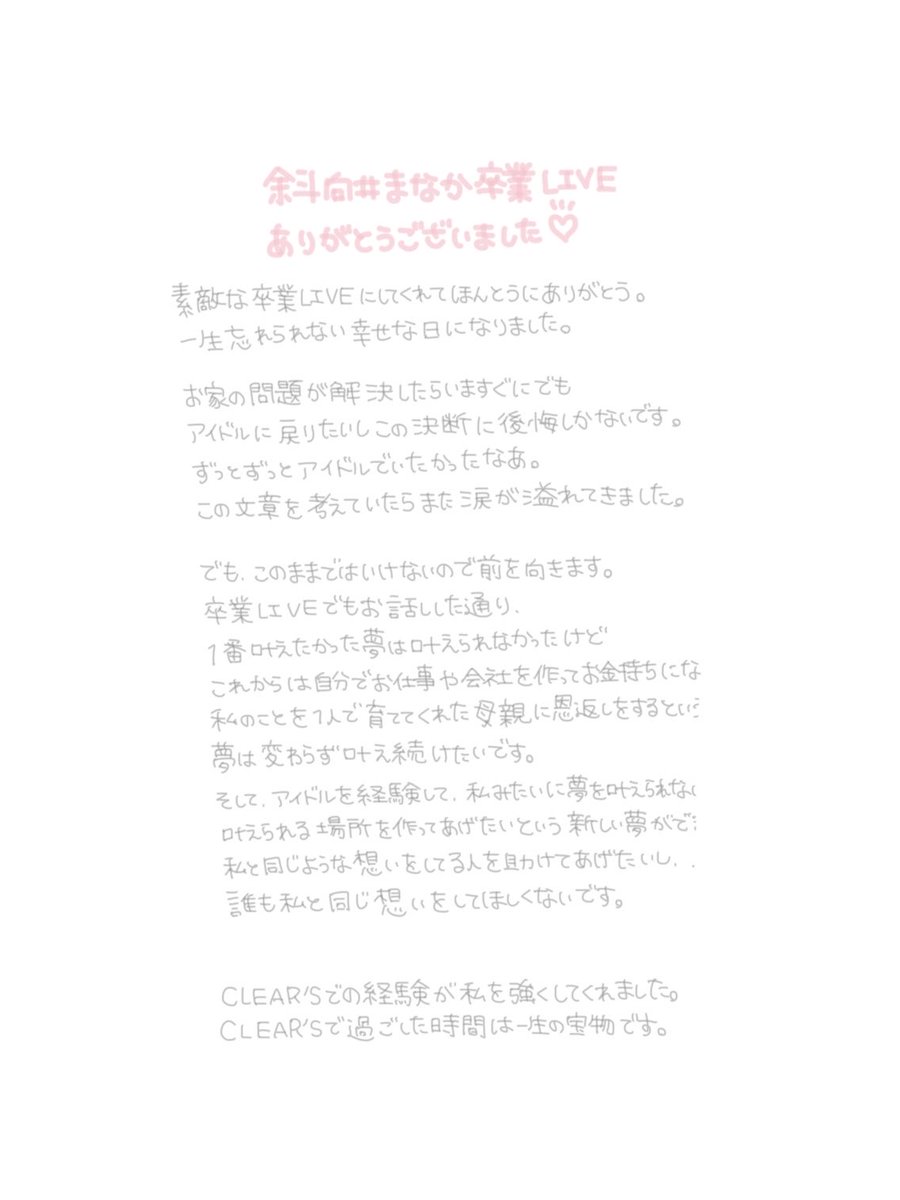 斜向井まなか卒業LIVE
ありがとうございました♡
素敵な卒業LIVEにしてくれてほんとうにありがとう。
一生忘れられない幸せな日になりました。
お家の問題が解決したらいますぐにでも
アイドルに戻りたいしこの決断に後悔しかないです。
ずっとずっとアイドルでいたかったなあ。
この文章を考えていたらまた涙が溢れてきました。
でも、このままではいけないので前を向きます。
卒業LIVEでもお話しした通り、
1番叶えたかった夢は叶えられなかったけど
これからは自分でお仕事や会社を作ってお金持ちにな
私のことを1人で育ててくれた母親に恩返しをするとい
夢は変わらず叶え続けたいです。
そして、アイドルを経験して、私みたいに夢を叶えられない
叶えられる場所を作ってあげたいという新しい夢がで
私と同じような想いをしてる人を助けてあげたいし、
誰も私と同じ想いをしてほしくないです。
CLEAR'Sでの経験が私を強くしてくれました。
CLEAR'Sで過ごした時間は一生の宝物です。